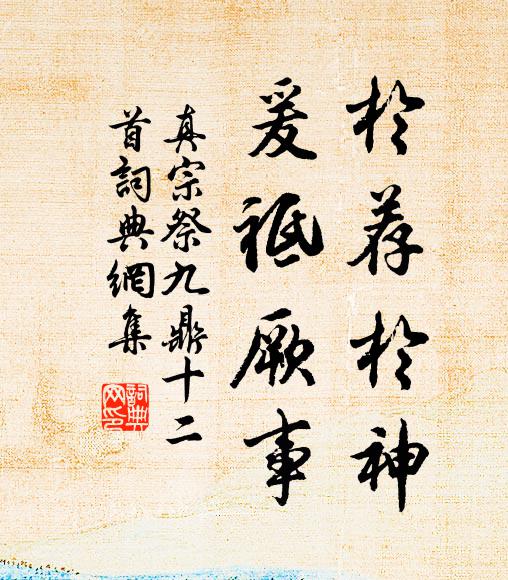 於荐於神
爰祗厥事
真宗祭九鼎十二
首詞典網集
詞典
网印